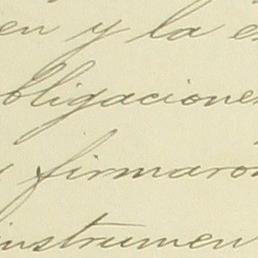 en y la e
bligacione
y firmaron
instrumen